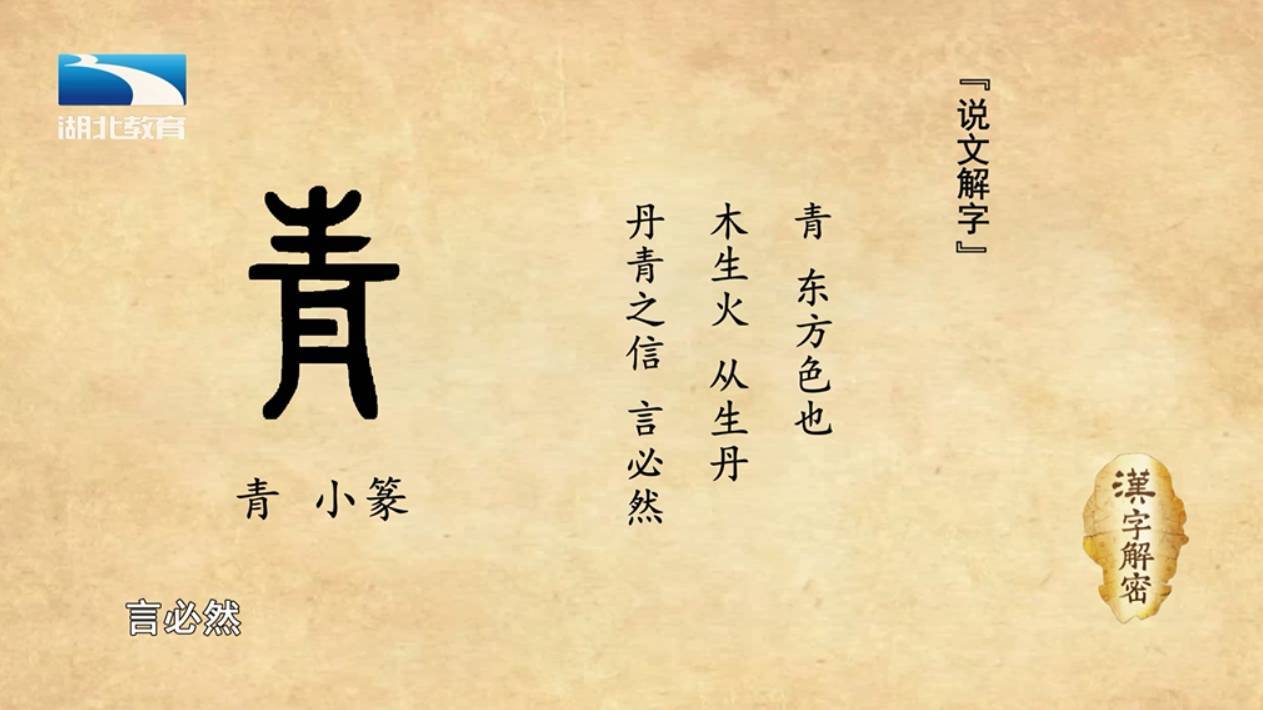 湖北教育
『说文解字』
青 东方色也
木生火 从生丹
丹青之信 言必然
青
青 小篆
漢字解密
言必然